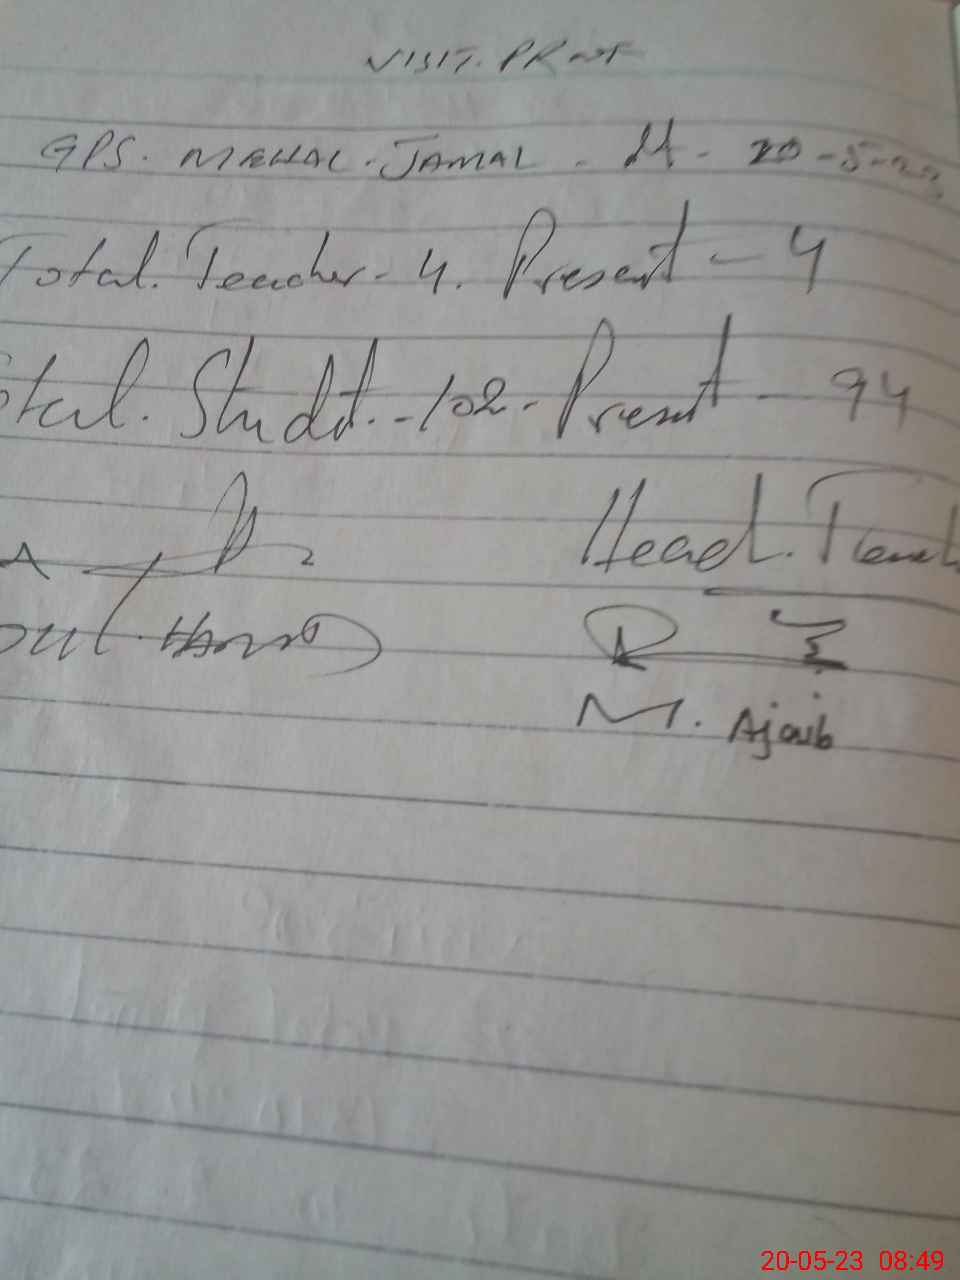 VISIT. PROOF
GPS. MEHAL. JAMAL - dt - 20-5-23
Total. Teacher - 4. Present - 4
otal. Studt. - 102 - Present - 94
Head. Teach
M. Ajaib
20-05-23 08:49